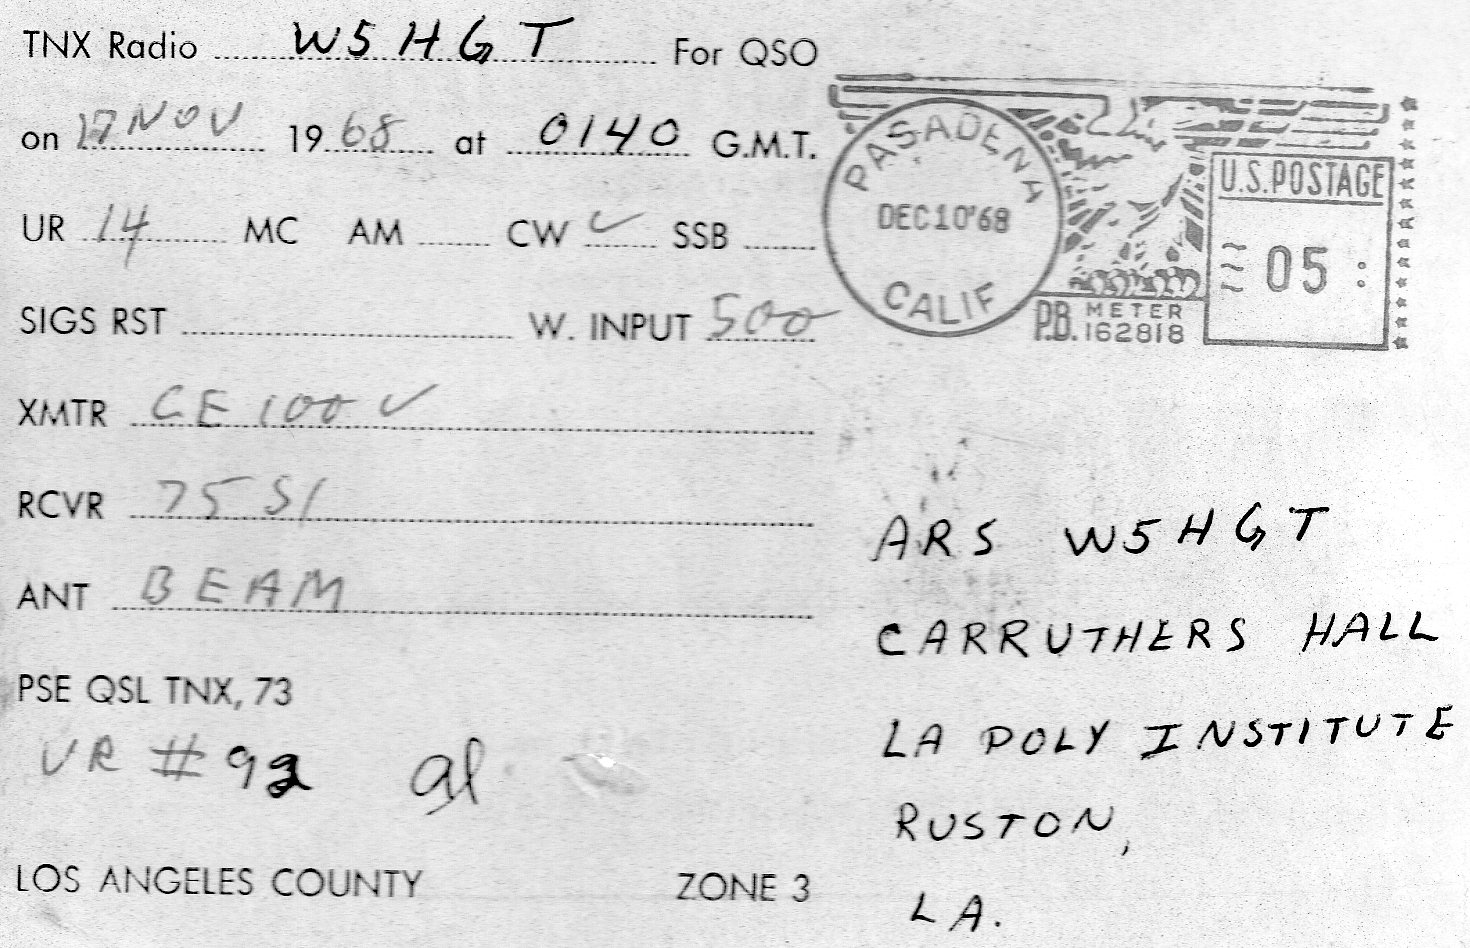 TNX Radio W5HGT For QSO
on 17 NOV 1968 at 0140 G.M.T.
UR 14 MC AM CW ✓ SSB
SIGS RST W. INPUT 500
XMTR CE 100 V
RCVR 75 S1
ANT BEAM
PSE QSL TNX, 73
UR # 92 al
LOS ANGELES COUNTY ZONE 3
PASADENA
DEC 10 '68
CALIF
P.B. METER
162818
U.S. POSTAGE
05
ARS W5HGT
CARRUTHERS HALL
LA POLY INSTITUTE
RUSTON,
LA.